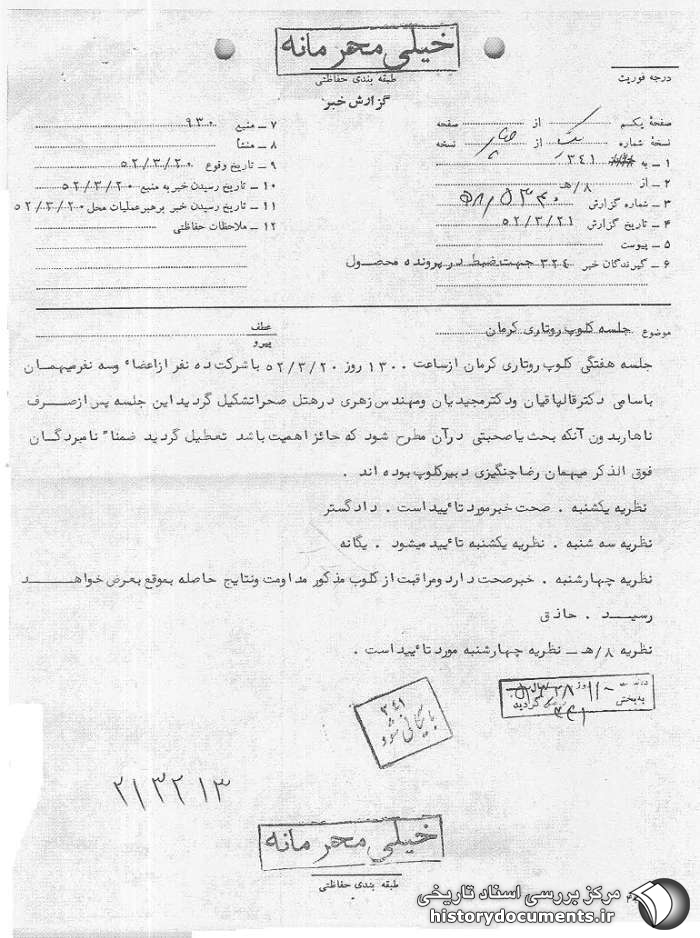 خیلی محرمانه
طبقه بندی حفاظتی
گزارش خبر
درجه فوریت
صفحهٔ یکم از صفحه
نسخهٔ شماره یک از نسخه
۱ ــ به ۳۴۱
۲ ــ از ۸/هـ
۳ ــ شماره گزارش
۴ ــ تاریخ گزارش ۵۲/۳/۲۱
۵ ــ پیوست
۶ ــ گیرندگان خبر ۳۲۴ جهت ضبط در پرونده محصول
۷ ــ منبع ۹۳۰
۸ ــ منشأ
۹ ــ تاریخ وقوع ۵۲/۳/۲۰
۱۰ ــ تاریخ رسیدن خبر به منبع ۵۲/۳/۲۰
۱۱ ــ تاریخ رسیدن خبر برهبر عملیات محل ۵۲/۳/۲۰
۱۲ ــ ملاحظات حفاظتی
موضوع جلسه کلوپ روتاری کرمان
عطف
پیرو
جلسه هفتگی کلوپ روتاری کرمان ازساعت ۱۳۰۰ روز ۵۲/۳/۲۰ باشرکت ده نفر ازاعضاء وسه نفرمیهمان
باسامی دکترقالیاقیان ودکترمجیدیان ومهندس زهری درهتل صحراتشکیل گردیداین جلسه پس ازصرف
ناهاربدون آنکه بحث یاصحبتی درآن مطرح شود که حائزاهمیت باشد تعطیل گردید ضمناً نامبردگان
فوق الذکر میهمان رضاچنگیزی دبیرکلوپ بوده اند .
نظریه یکشنبه . صحت خبرمورد تائیداست . دادگستر
نظریه سه شنبه . نظریه یکشنبه تائیدمیشود . یگانه
نظریه چهارشنبه . خبرصحت دارد ومراقبت از کلوپ مذکور مداومت ونتایج حاصله بموقع بعرض خواهد
رسید . حاذق
نظریه ۸/هـ ــ نظریه چهارشنبه مورد تائیداست .
به بخش ۳۴۱ گردید
۳۴۱
بایگانی شود
۲۱۳۲۱۳
خیلی محرمانه
طبقه بندی حفاظتی
مرکز بررسی اسناد تاریخی
historydocuments.ir